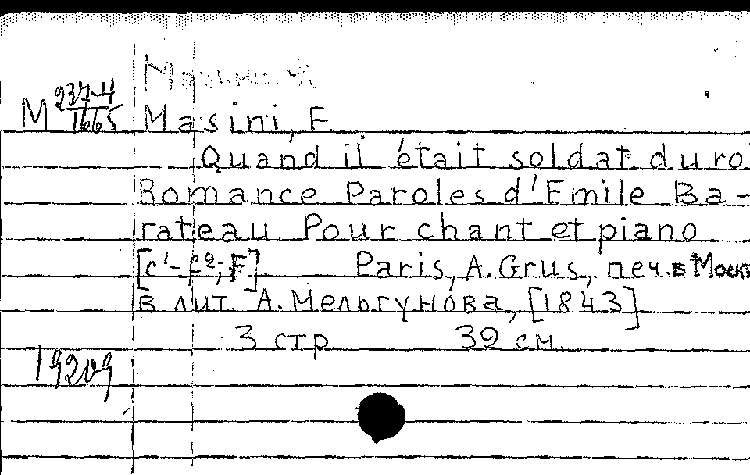 М 237-4/1665
Masini, F.
Quand il était soldat du roi
Romance Paroles d'Emile Ba-
rateau Pour chant et piano
[c¹-f²; F] Paris, A. Grus, печ. в Моск
в лит. А. Мельгунова, [1843]
3 стр 39 см.
19209